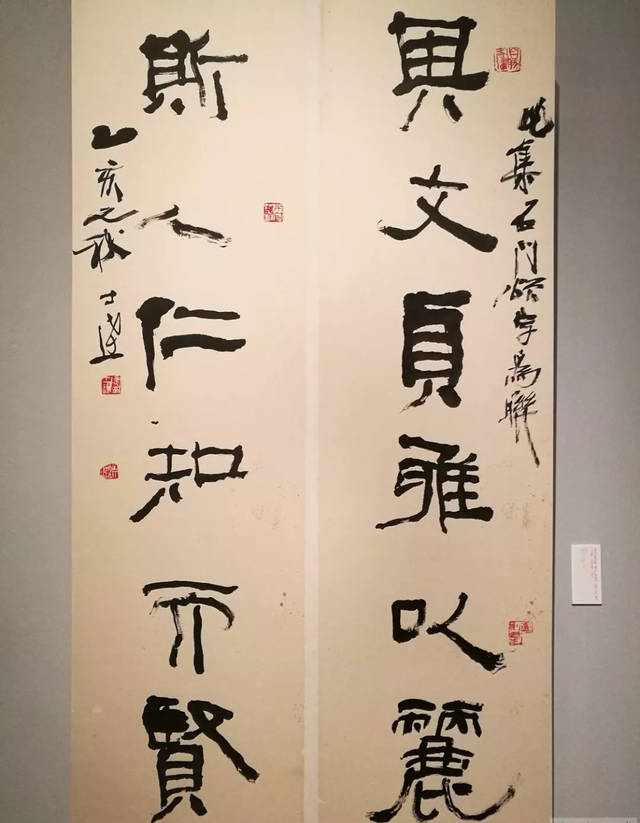 集石門頌字為聯
其文貞雅以麗
斯人仁知而賢
乙亥之秋 士達